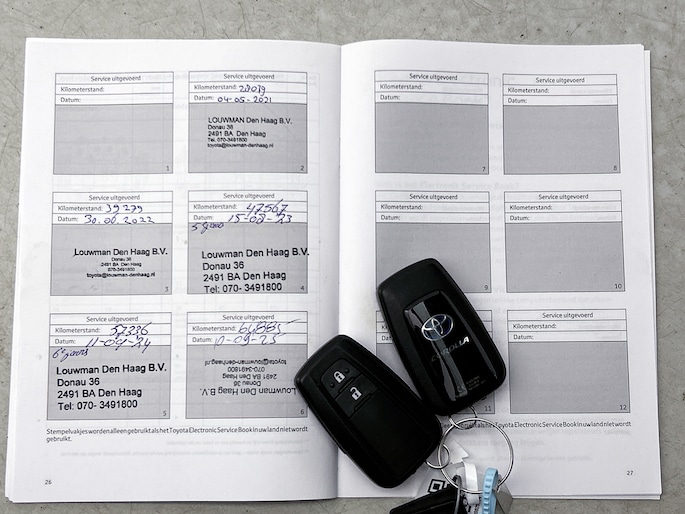 Service uitgevoerd
Kilometerstand:
Datum:
1
Service uitgevoerd
Kilometerstand:
Datum: 04-05-2021
LOUWMAN Den Haag B.V.
Donau 36
2491 BA Den Haag
Tel. 070-3491800
toyota@louwman-denhaag.nl
2
Service uitgevoerd
Kilometerstand: 39279
Datum: 2022
Louwman Den Haag B.V.
Donau 36
2491 BA Den Haag
070-3491800
toyota@louwman-denhaag.nl
3
Service uitgevoerd
Kilometerstand: 47567
Datum: 23
5 jaars
Louwman Den Haag B.V.
Donau 36
2491 BA Den Haag
Tel: 070- 3491800
4
Service uitgevoerd
Kilometerstand: 57236
Datum:
6 jaars
Louwman Den Haag B.V.
Donau 36
2491 BA Den Haag
Tel: 070- 3491800
5
Service uitgevoerd
Kilometerstand:
Datum:
Louwman Den Haag B.V.
Donau 36
2491 BA Den Haag
070-3491800
toyota@louwman-denhaag.nl
6
Stempelvakjes worden alleen gebruikt als het Toyota Electronic Service Book in uw land niet wordt
gebruikt.
26
Service uitgevoerd
Kilometerstand:
Datum:
7
Service uitgevoerd
Kilometerstand:
Datum:
8
Service uitgevoerd
Kilometerstand:
Datum:
9
Service uitgevoerd
Kilometerstand:
Datum:
10
COROLLA
11
Service uitgevoerd
Kilometerstand:
Datum:
12
als het Toyota Electronic Service Book in uw land niet wordt
27